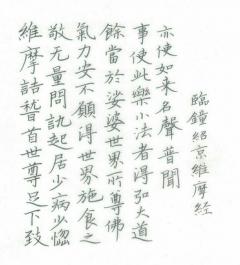 臨鐘紹京維摩經
亦使如來名聲普聞
事使此樂小法者得弘大道
餘當於娑婆世界所尊佛
氣力安不願得世界施食之
敬无量問訊起居少病少惱
維摩詰稽首世尊足下致